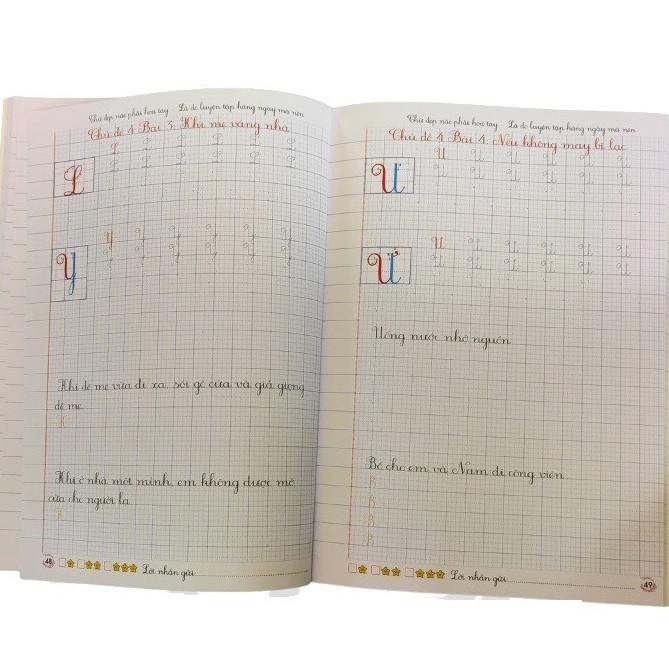 Chữ đẹp nào phải hoa tay Là do luyện tập hàng ngày mà nên
Chủ đề 4 Bài 3: Khi mẹ vắng nhà
L L L L L L L
L L L L L L
Y Y Y Y Y Y Y
Y Y Y Y Y Y
Khi dê mẹ vừa đi xa, sói gõ cửa và giả giọng
dê mẹ.
K
Khi ở nhà một mình, em không được mở
cửa cho người lạ.
K
48 Lời nhắn gửi:
Chữ đẹp nào phải hoa tay - Là do luyện tập hàng ngày mà nên
Chủ đề 4 Bài 4: Nếu không may bị lạc
U U U U U U U
U U U U U U
Ư U U U U U U
U U U U U U
Uống nước nhớ nguồn.
Bố cho em và Nam đi công viên.
B
B
B
B
Lời nhắn gửi: 49